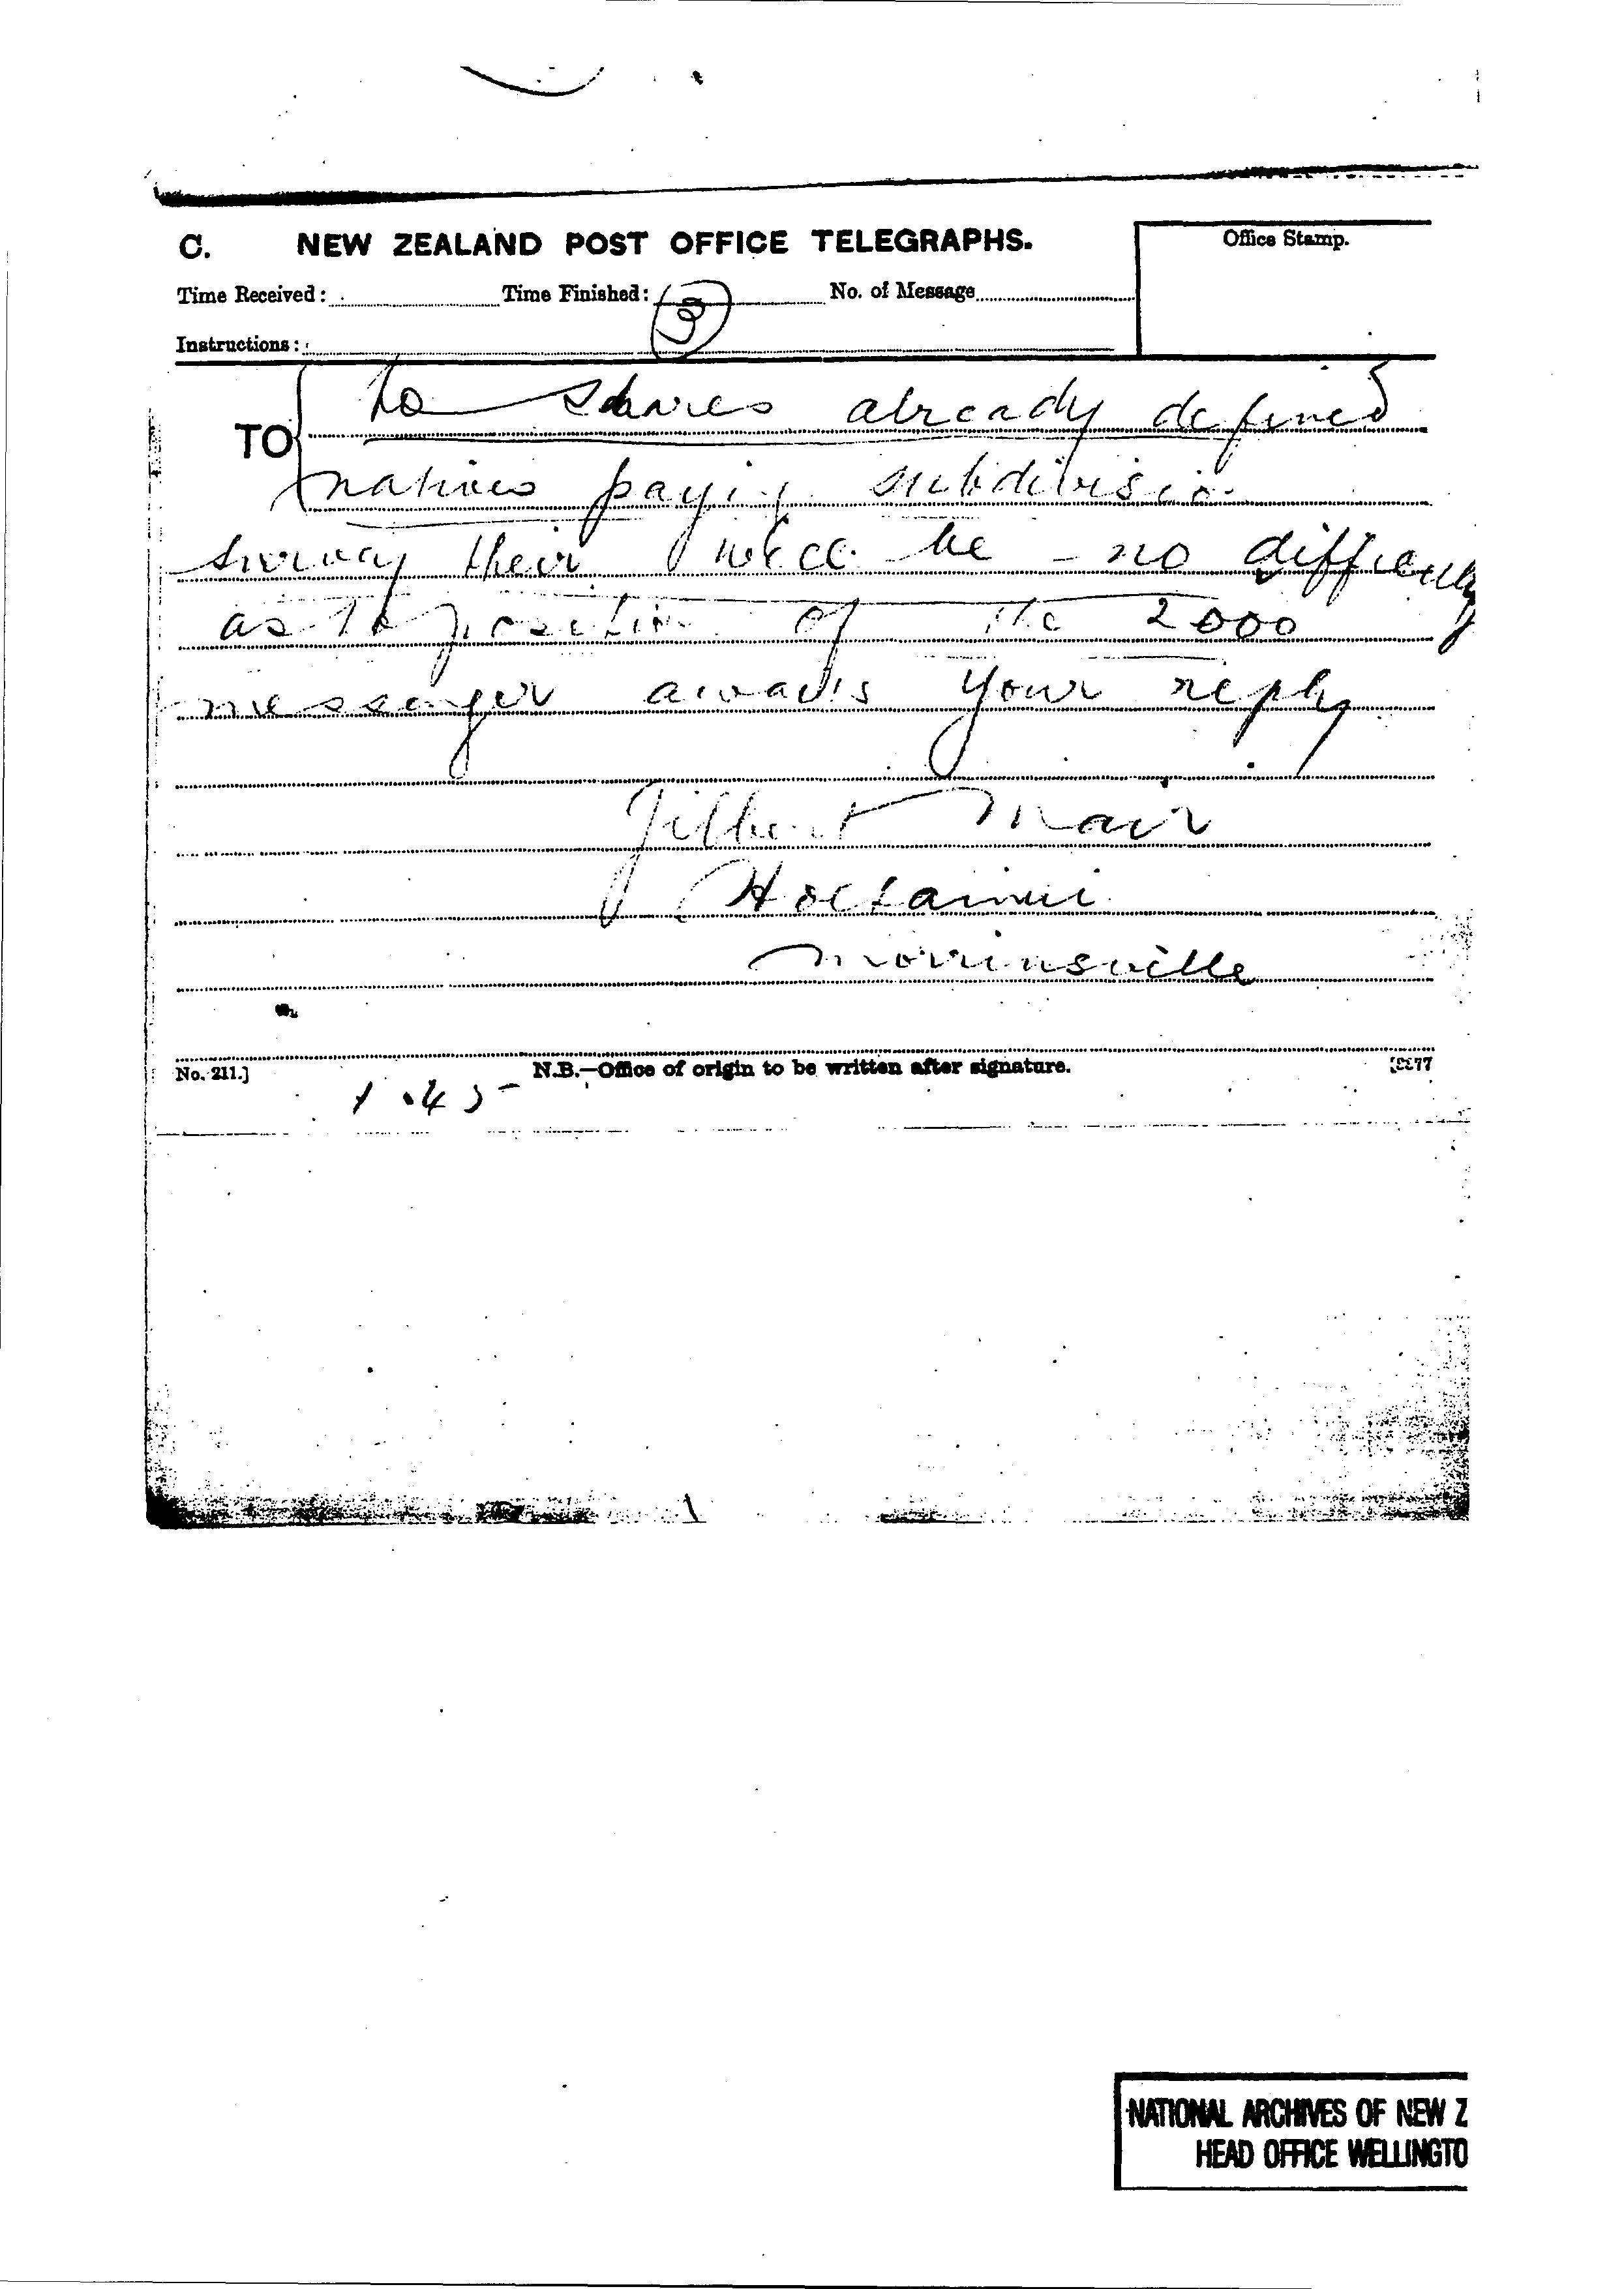 C. NEW ZEALAND POST OFFICE TELEGRAPHS.
Office Stamp.
Time Received: Time Finished: No. of Message
3
Instructions:
TO
to shares already defined
natives paying subdivision
survey their will be no difficulty
as to position of the 2000
messenger awaits your reply
Gilbert Mair
Hoe
Morrinsville
No. 211.]
N.B.—Office of origin to be written after signature.
1.45
NATIONAL ARCHIVES OF NEW Z
HEAD OFFICE WELLINGTO